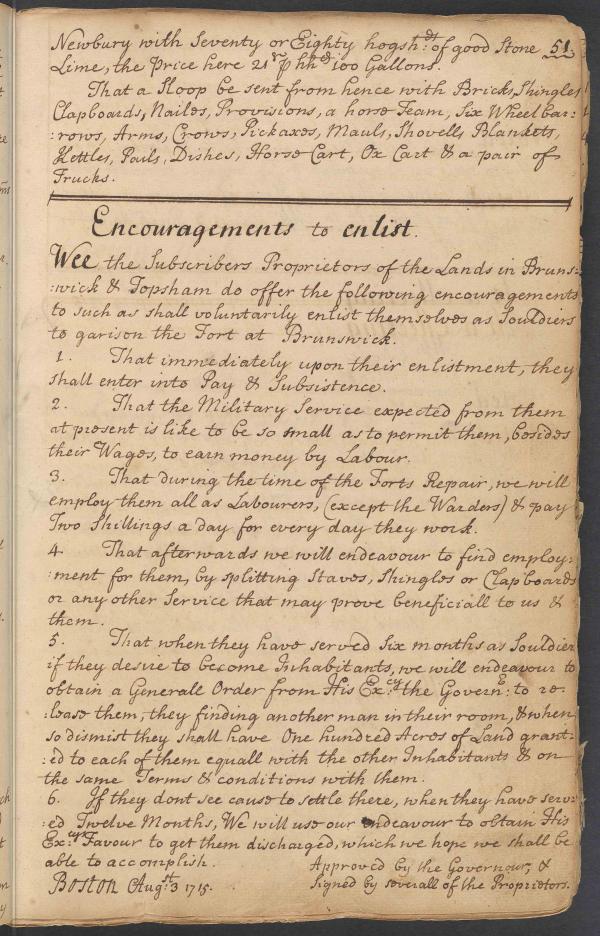 Newbury with Seventy or Eighty hogsh:ds of good Stone 51.
Lime, the Price here 21s p hhd 100 Gallons.
That a Sloop be sent from hence with Bricks, Shingles
Clapboards, Nailes, Provisions, a horse Team, Six Wheel bar:
:rows, Arms, Crows, Pickaxes, Mauls, Shovells, Blankets,
Kettles, Pails, Dishes, Horse Cart, Ox Cart & a pair of
Trucks.
Encouragements to enlist.
Wee the Subscribers Proprietors of the Lands in Bruns:
:wick & Topsham do offer the following encouragements
to such as shall voluntarily enlist themselves as Souldiers
to garison the Fort at Brunswick.
1. That immediately upon their enlistment, they
shall enter into Pay & Subsistence.
2. That the Military Service expected from them
at present is like to be so small as to permit them, besides
their Wages, to earn money by Labour.
3. That during the time of the Forts Repair, we will
employ them all as Labourers, (except the Warders) & pay
Two Shillings a day for every day they work.
4 That afterwards we will endeavour to find employ:
:ment for them, by splitting Staves, Shingles or Clapboards
or any other Service that may prove beneficiall to us &
them.
5. That when they have served Six months as Souldiers
if they desire to become Inhabitants, we will endeavour to
obtain a Generall Order from His Ex:cy the Govern:r to re:
:lease them, they finding another man in their room, & when
so dismist they shall have One hundred Acres of Land grant:
:ed to each of them equall with the other Inhabitants & on
the same Terms & conditions with them.
6. If they dont see cause to settle there, when they have serv:
:ed Twelve Months, We will use our endeavour to obtain His
Ex:cys Favour to get them discharged, which we hope we shall be
able to accomplish. Approved by the Governour, &
Boston Aug:st 3 1715. Signed by severall of the Proprietors.